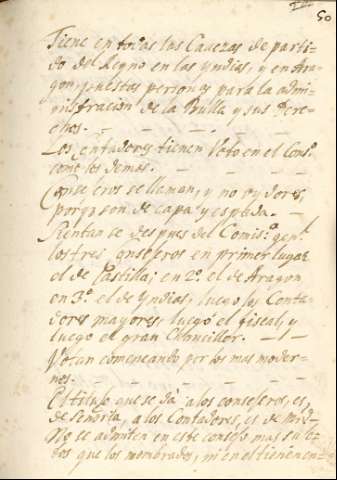 50
Tiene en todas las Cavezas de parti-
do del Reyno en las Yndias, y en Ara-
gon, puestas personas para la admi-
nistracion de la Bulla y sus Dere-
chos.
Los Contadores tienen Voto en el Cons.º
como los demas.
Conseieros se llaman, y no oydores,
porq. son de capa y espada.
Sientanse despues del Comis.º gen.l
los tres Conseieros en primer lugar
el de Castilla; en 2.º el de Aragon
en 3.º el de Yndias, luego los Conta-
dores mayores, luego el fiscal, y
luego el gran Chanciller.
Votan comenzando por los mas moder-
nos.
El titulo que se da a los conseieros, es,
de señoria, a los Contadores, es de mrd.
No se admiten en este consejo mas
dos que los nombrados, ni en el tienen en-